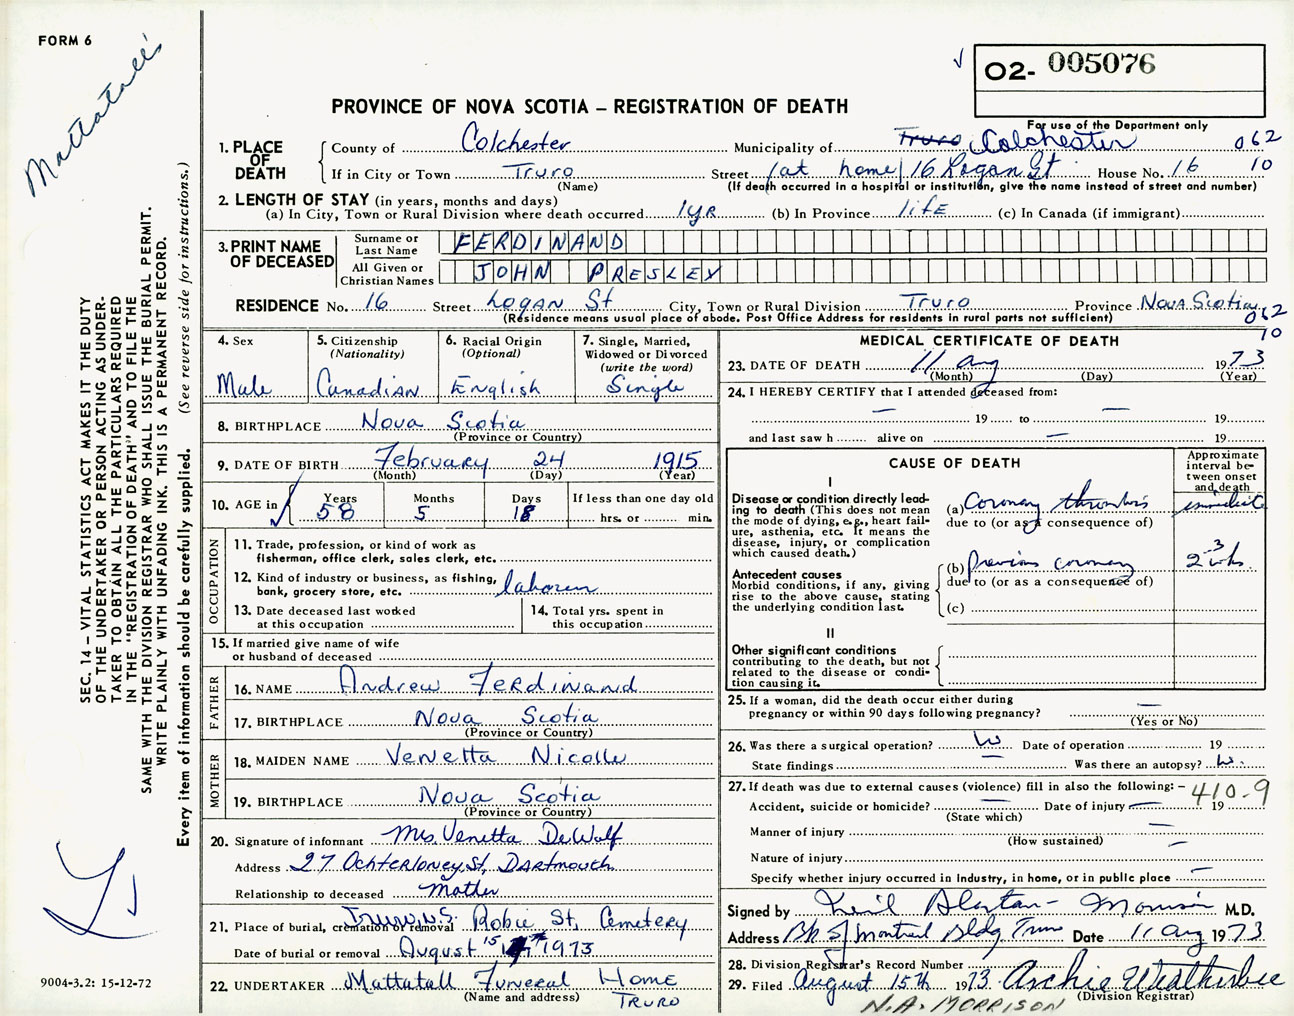 FORM 6
Mattatall's
02- 005076
PROVINCE OF NOVA SCOTIA – REGISTRATION OF DEATH
For use of the Department only
1. PLACE OF DEATH
County of Colchester Municipality of Truro Colchester 062
If in City or Town Truro Street (at home) 16 Logan St House No. 16 10
(Name) (If death occurred in a hospital or institution, give the name instead of street and number)
2. LENGTH OF STAY (in years, months and days)
(a) In City, Town or Rural Division where death occurred 1 yr (b) In Province life (c) In Canada (if immigrant)
3. PRINT NAME OF DECEASED
Surname or Last Name FERDINAND
All Given or Christian Names JOHN PRESLEY
RESIDENCE No. 16 Street Logan St City, Town or Rural Division Truro Province Nova Scotia
(Residence means usual place of abode. Post Office Address for residents in rural parts not sufficient) 062
10
4. Sex
Male
5. Citizenship (Nationality)
Canadian
6. Racial Origin (Optional)
English
7. Single, Married, Widowed or Divorced (write the word)
Single
8. BIRTHPLACE Nova Scotia
(Province or Country)
9. DATE OF BIRTH February 24 1915
(Month) (Day) (Year)
10. AGE in Years Months Days If less than one day old
58 5 18 hrs. or min.
OCCUPATION
11. Trade, profession, or kind of work as fisherman, office clerk, sales clerk, etc.
12. Kind of industry or business, as fishing, bank, grocery store, etc. laborer
13. Date deceased last worked at this occupation
14. Total yrs. spent in this occupation
15. If married give name of wife or husband of deceased
FATHER
16. NAME Andrew Ferdinand
17. BIRTHPLACE Nova Scotia
(Province or Country)
MOTHER
18. MAIDEN NAME Venetta Nicolle
19. BIRTHPLACE Nova Scotia
(Province or Country)
20. Signature of informant Mrs. Venetta DeWolf
Address 27 Ochterloney St, Dartmouth
Relationship to deceased Mother
21. Place of burial, cremation or removal Truro, N.S. Robie St, Cemetery
Date of burial or removal August 15 1973
22. UNDERTAKER Mattatall Funeral Home
(Name and address) TRURO
MEDICAL CERTIFICATE OF DEATH
23. DATE OF DEATH 11 Aug 1973
(Month) (Day) (Year)
24. I HEREBY CERTIFY that I attended deceased from:
— 19 to — 19
and last saw h alive on — 19
CAUSE OF DEATH
Approximate interval between onset and death
I
Disease or condition directly leading to death (This does not mean the mode of dying, e.g., heart failure, asthenia, etc. It means the disease, injury, or complication which caused death.)
(a) Coronary thrombosis immediate
due to (or as a consequence of)
Antecedent causes
Morbid conditions, if any, giving rise to the above cause, stating the underlying condition last.
(b) Previous coronary 2-3 wks.
due to (or as a consequence of)
(c)
II
Other significant conditions contributing to the death, but not related to the disease or condition causing it.
25. If a woman, did the death occur either during pregnancy or within 90 days following pregnancy? —
(Yes or No)
26. Was there a surgical operation? Date of operation — 19
State findings — Was there an autopsy?
27. If death was due to external causes (violence) fill in also the following: – 410-9
Accident, suicide or homicide? — Date of injury — 19
(State which)
Manner of injury —
(How sustained)
Nature of injury —
Specify whether injury occurred in Industry, in home, or in public place —
Signed by Morrison M.D.
Address Bk of Montreal Bldg, Truro Date 11 Aug 1973
28. Division Registrar's Record Number
29. Filed August 15th 1973 Archie Weatherbee
(Division Registrar)
N.A. MORRISON
SEC. 14 – VITAL STATISTICS ACT MAKES IT THE DUTY
OF THE UNDERTAKER OR PERSON ACTING AS UNDER-
TAKER TO OBTAIN ALL THE PARTICULARS REQUIRED
IN THE "REGISTRATION OF DEATH" AND TO FILE THE
SAME WITH THE DIVISION REGISTRAR WHO SHALL ISSUE THE BURIAL PERMIT.
WRITE PLAINLY WITH UNFADING INK. THIS IS A PERMANENT RECORD.
Every item of information should be carefully supplied. (See reverse side for instructions.)
9004-3.2: 15-12-72